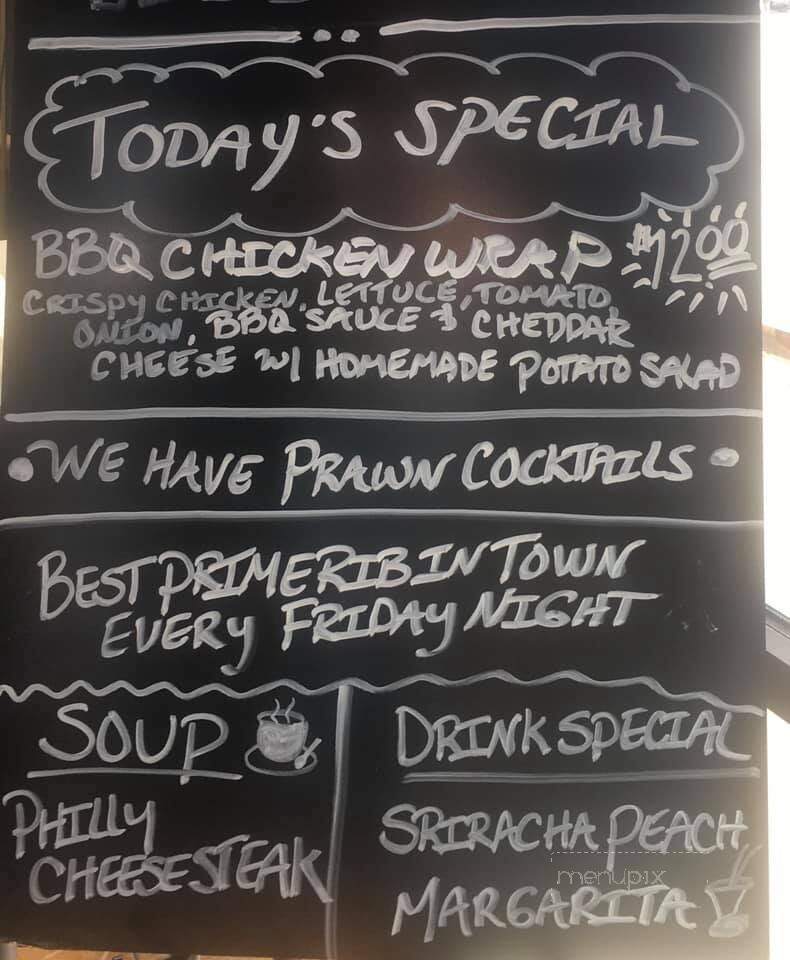 TODAY'S SPECIAL
BBQ CHICKEN WRAP $12.00
CRISPY CHICKEN, LETTUCE, TOMATO,
ONION, BBQ SAUCE & CHEDDAR
CHEESE W/ HOMEMADE POTATO SALAD
• WE HAVE PRAWN COCKTAILS •
BEST PRIME RIB IN TOWN
EVERY FRIDAY NIGHT
SOUP
PHILLY
CHEESESTEAK
DRINK SPECIAL
SRIRACHA PEACH
MARGARITA
menupix